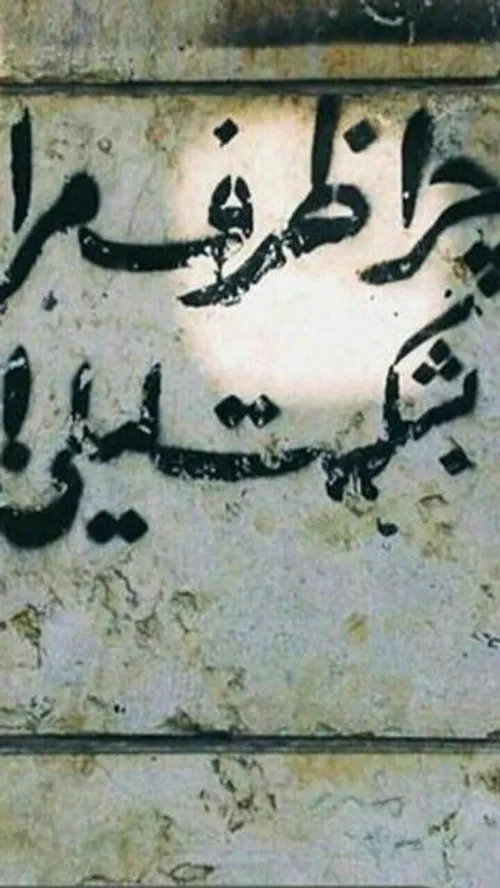 چرا ظرف مرا
بشکست لیلی!